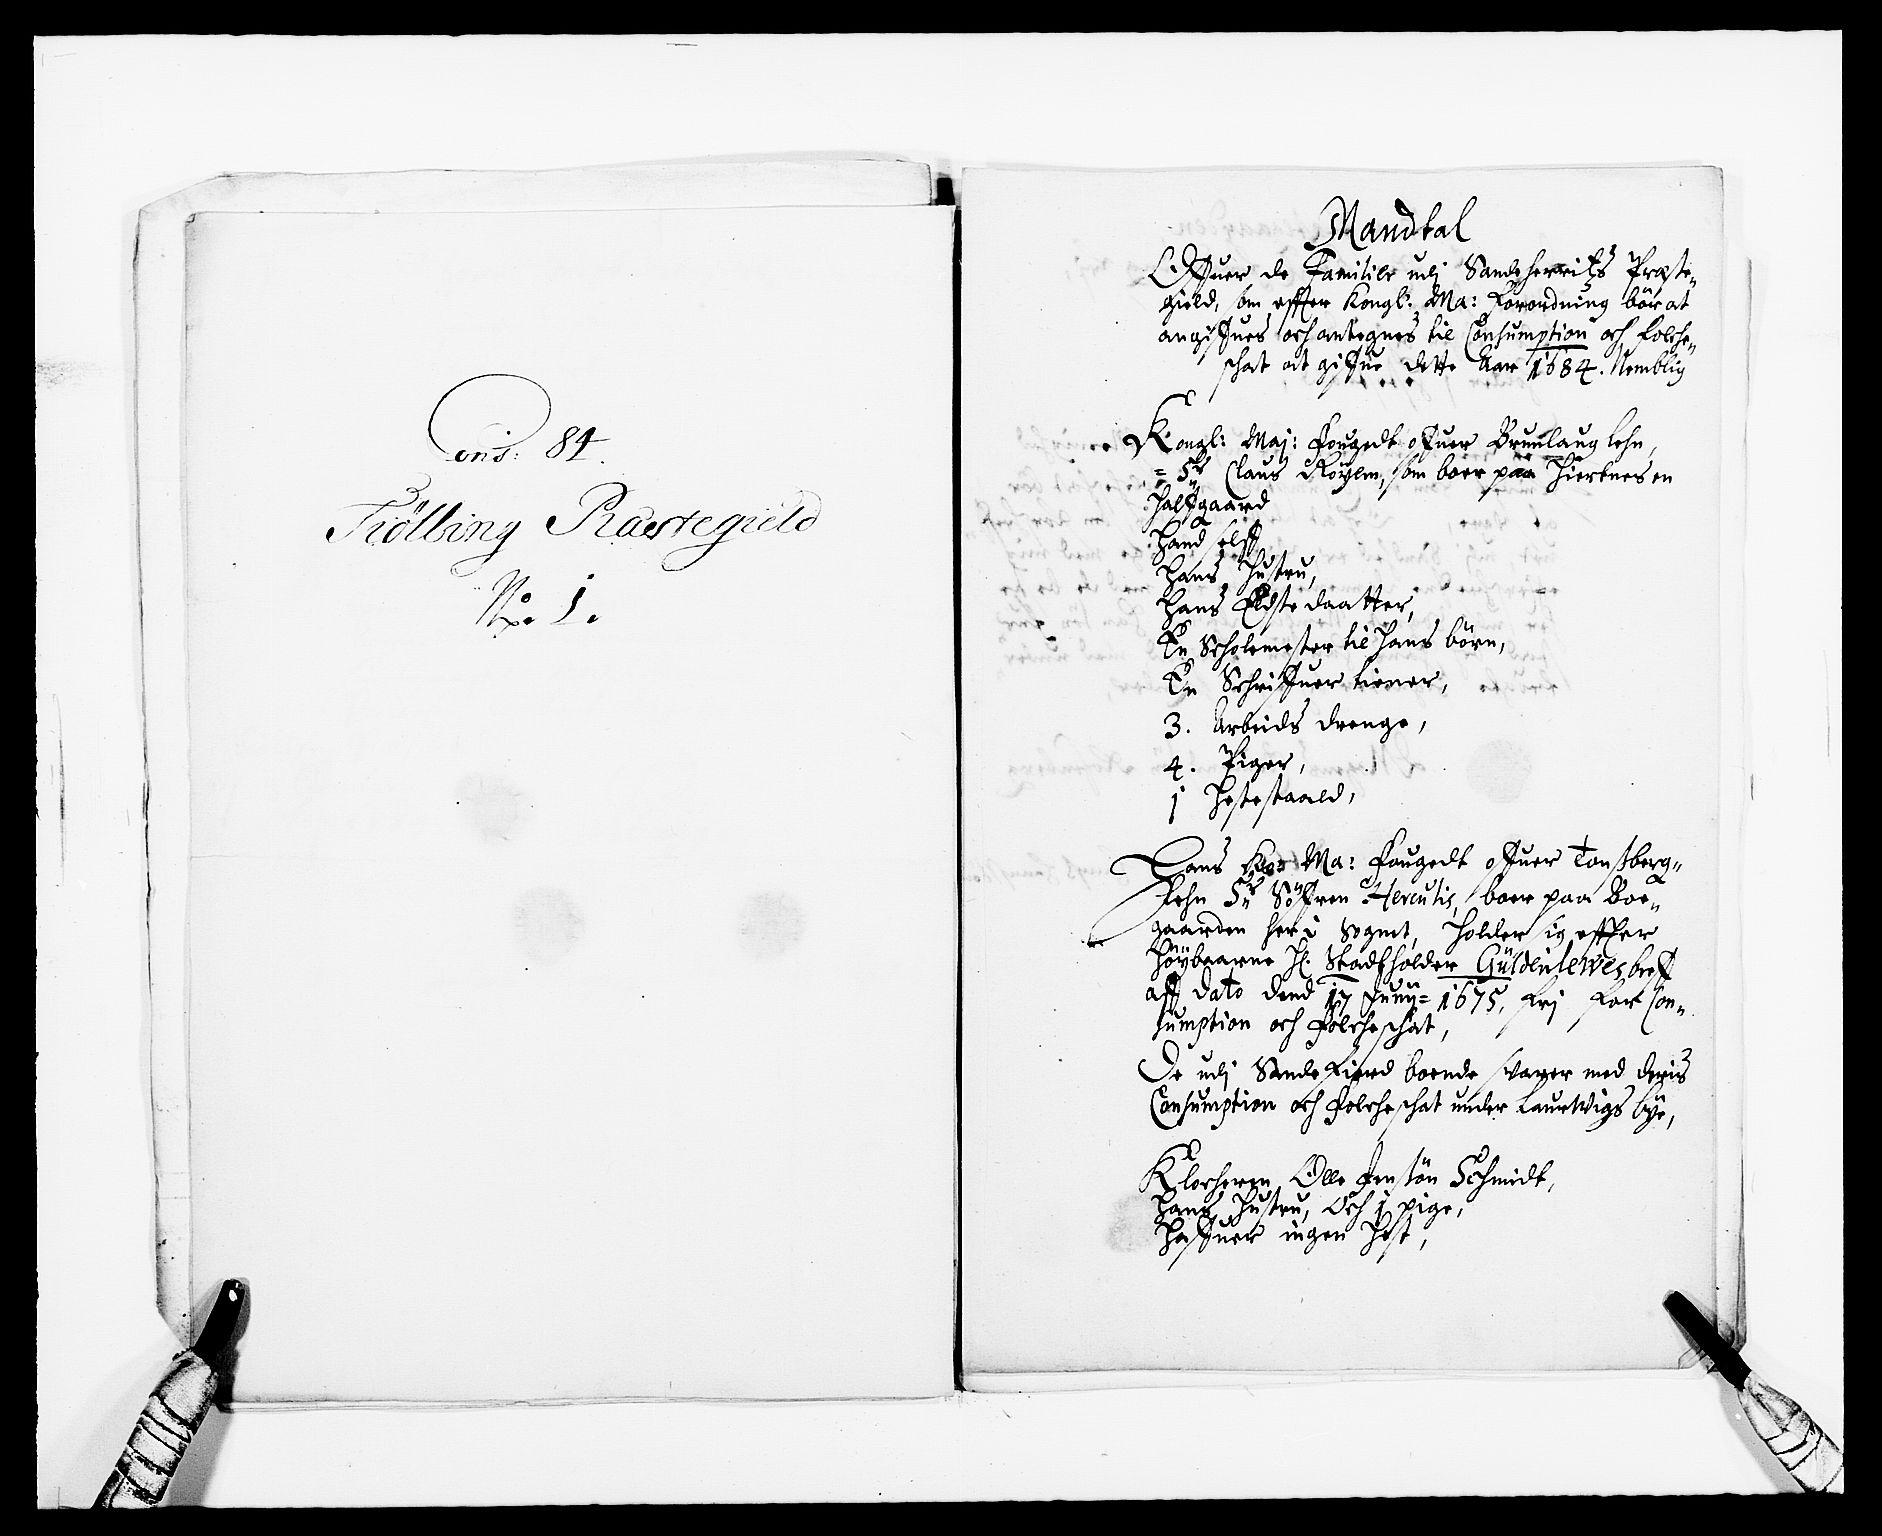 Cons: 84.
Tiölling Præstegield
No. 1.
Mandtal
Offuer de Familier udj Sandeherritz Præste-
gield, som effter Kongl: Ma: Forordning bör at
angiffues och antegnes til Consumption och folche-
schat at giffue dette Aar 1684. Nemblig
Kongl: Maj: Fougedt offuer Brunlaug lehn,
Sr Claus Röyem, som boer paa Hiertnes en
halfgaard
Hand selff
Hans Hustru,
Hans Eldste daatter,
En Scholemester til Hans börn,
En Schriffuer tiener,
3. Arbeids drenge,
4. Piger,
1 Hestestaald,
Hans Ko: Ma: Fougedt offuer Tonsberg-
Lehn Sr Söfren Herculis, boer paa Boe-
gaarden her i Sognet, Holder sig effter
Höybaarne H. Stadtholder Güldenlewes breff
aff dato dend 17 Junij 1675, frj for Con-
sumption och folcheschat,
De udj Sandefierd boende svarer med deris
Consumption och folcheschat under Laurwigs bye,
Klocheren Olle Jensön Schmidt,
Hans Hustru, Och 1 pige,
Haffuer ingen Hest,